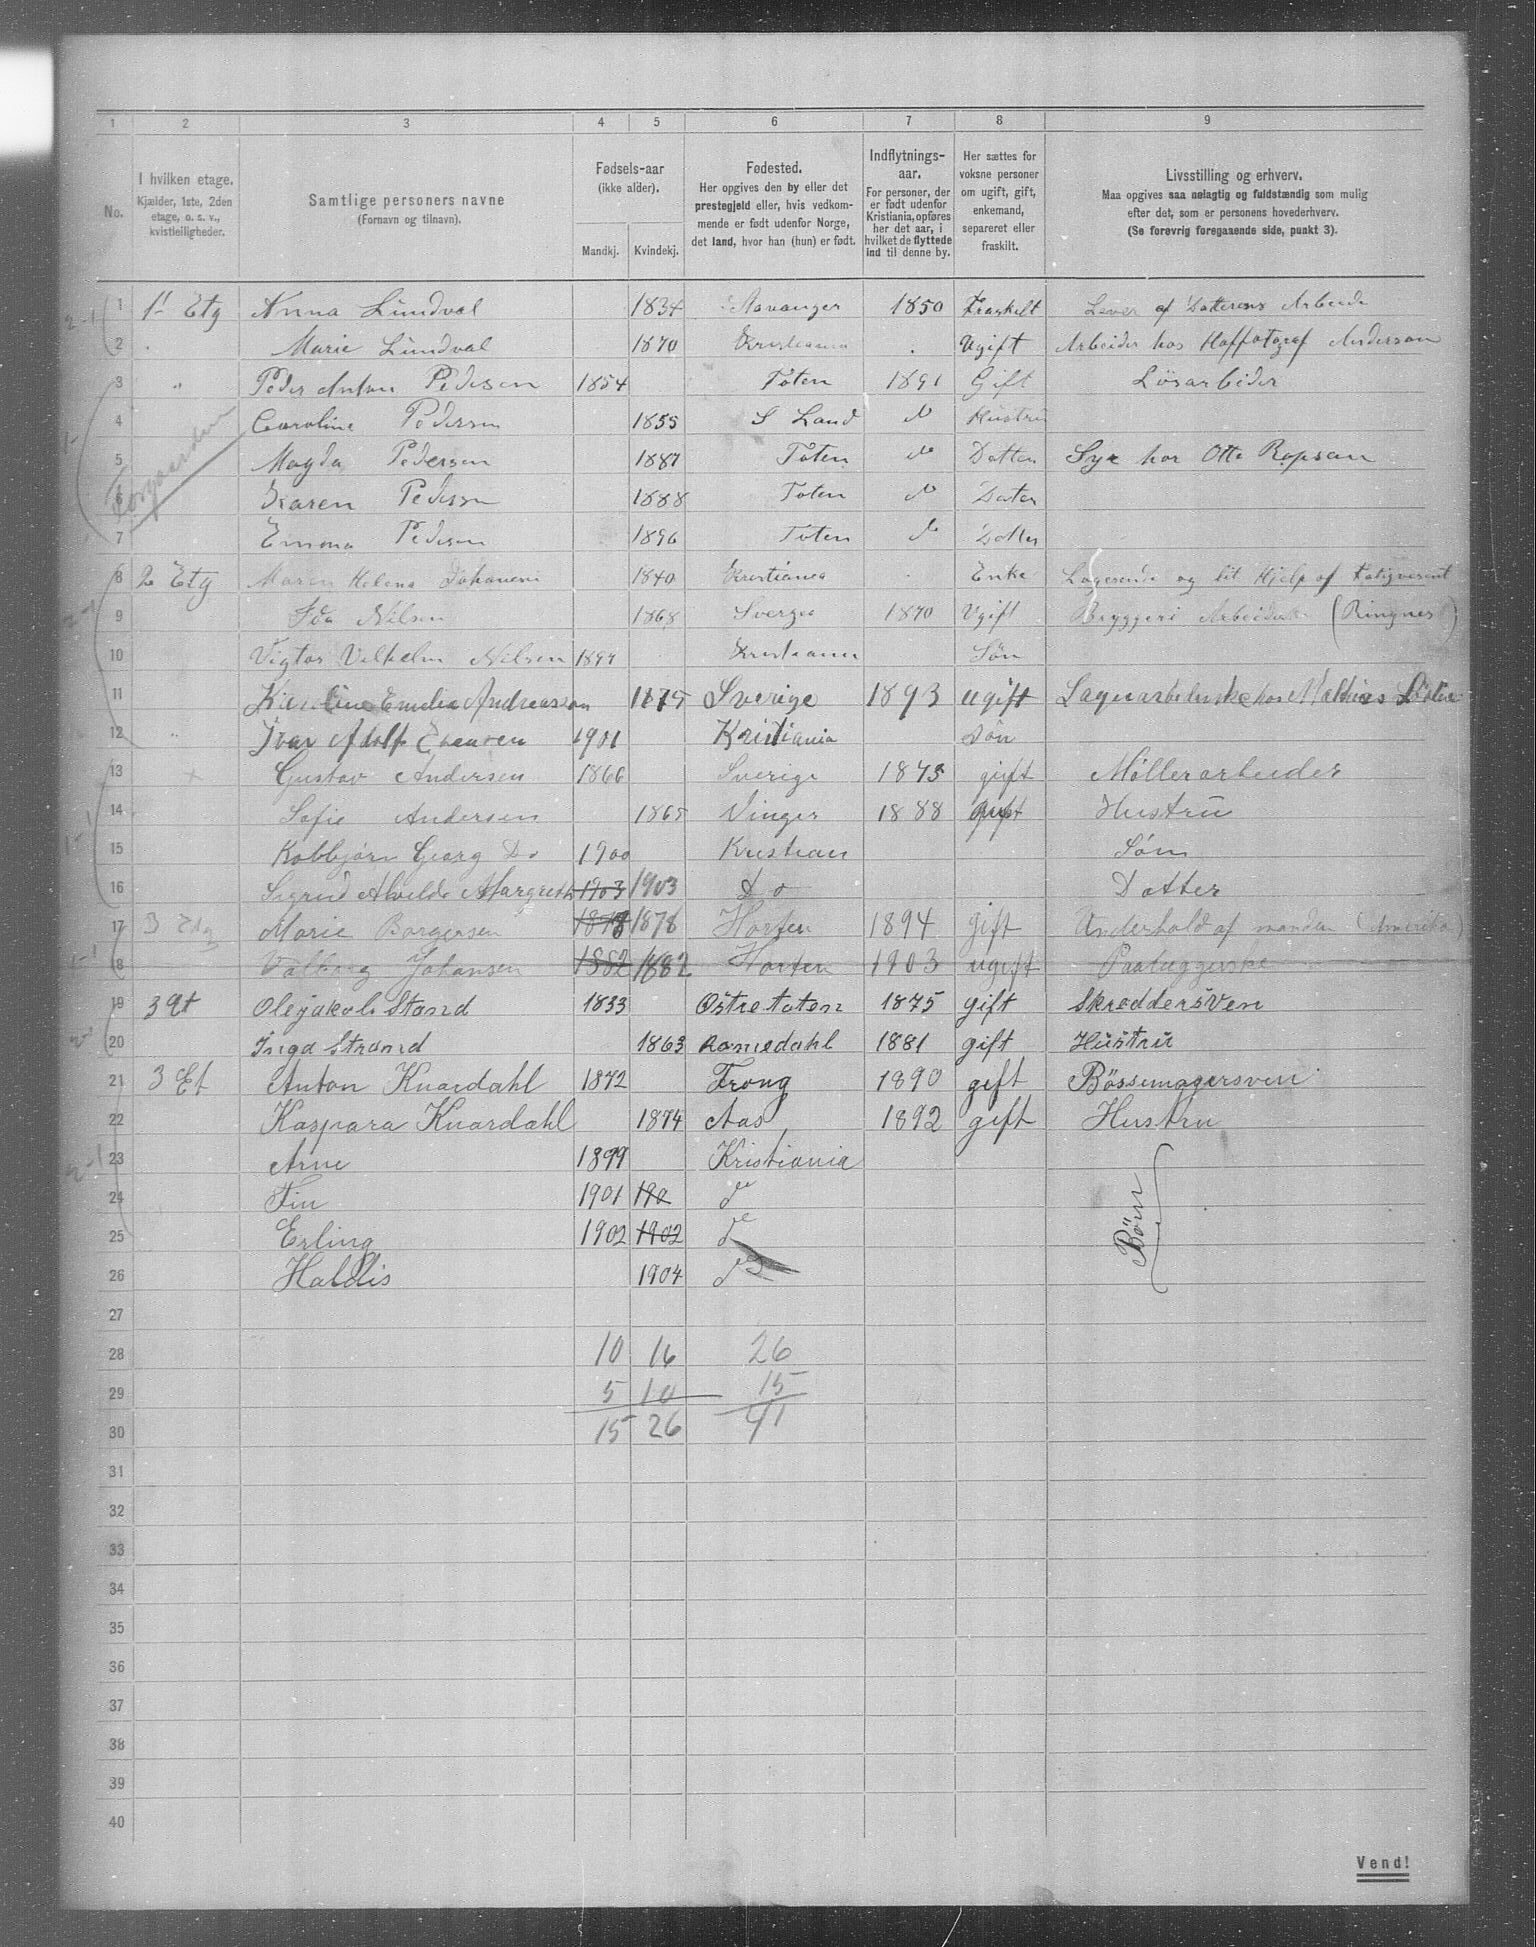 1 2 3 4 5 6 7 8 9
No.
I hvilken etage.
Kjælder, 1ste, 2den
etage, o. s. v.,
kvistleiligheder.
Samtlige personers navne
(Fornavn og tilnavn).
Fødsels-aar
(ikke alder).
Mandkj. Kvindekj.
Fødested.
Her opgives den by eller det
prestegjeld eller, hvis vedkom-
mende er født udenfor Norge,
det land, hvor han (hun) er født.
Indflytnings-
aar.
For personer, der
er født udenfor
Kristiania, opføres
her det aar, i
hvilket de flyttede
ind til denne by.
Her sættes for
voksne personer
om ugift, gift,
enkemand,
separeret eller
fraskilt.
Livsstilling og erhverv.
Maa opgives saa nøiagtig og fuldstændig som mulig
efter det, som er personens hovederhverv.
(Se forøvrig foregaaende side, punkt 3).
1 1 Etg Anna Lündval 1834 Stavanger 1850 Fraskilt Lever af Datterens Arbeide
2 Marie Lündval 1870 Kristiania Ugift Arbeider hos Hoffotograf Anderson
3 " Peder Anton Pedersen 1854 Toten 1891 Gift Lösarbeider
4 Caroline Pedersen 1855 S Land do Hustru
5 Magda Pedersen 1887 Toten do Datter Sye hos Otto
6 Karen Pedersen 1888 Toten do Datter
7 Emma Pedersen 1896 Toten do Datter
Forgaarden
8 2 Etg Maren Helena 1840 Kristiania Enke Logerende og lit Hjelp af
9 Ida Nilsen 1868 Sverge 1870 Ugift Bryggeri (Ringnes)
10 Vigtor Vilhelm Nilsen 1894 Kristiania Søn
11 Emelie Andreasson 1875 Sverige 1893 ugift hos Mathias
12 " Ivar Adolf 1901 Kristiania Sön
13 Gustav Andersen 1866 Sverige 1875 gift Møllerarbeider
14 Sofie Andersen 1865 Vinger 1888 gift Hustrü
15 Georg Do 1900 Kristian Søn
16 Sigrid Alvilde Margrethe 1903 1903 Do Datter
17 3 Etg Marie Borgersen 1878 1878 Horten 1894 gift Underhold af manden (Amerika)
18 Valborg Johansen 1882 1882 Horten 1903 ugift
19 3 et Olejakob Stand 1833 Östre toten 1875 gift Skreddersven
20 Inga Strand 1863 Romedahl 1881 gift Hüstrü
21 3 Et Anton Knardahl 1872 Frong 1890 gift Bössemagersven
22 Kaspara Knardahl 1874 Aas 1892 gift Hustru
23 Arne 1899 Kristiania
24 Fin 1901 190 do
25 Erling 1902 1902 do
26 Haldis 1904 do
Börn
27
28 10 16 26
29 5 10 15
30 15 26 41
31
32
33
34
35
36
37
38
39
40
Vend!